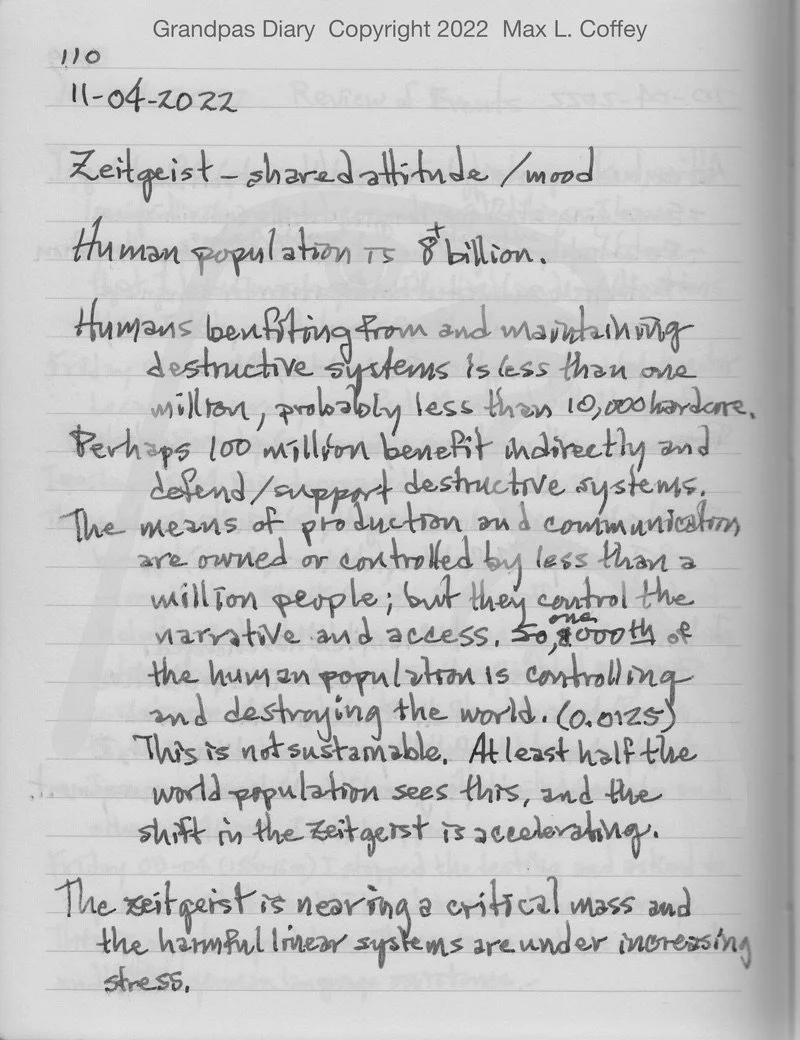 Grandpas Diary Copyright 2022 Max L. Coffey
110
11-04-2022
Zeitgeist - shared attitude / mood
Human population is 8+ billion.
Humans benfiting from and maintaining
destructive systems is less than one
million, probably less than 10,000 hardcore.
Perhaps 100 million benefit indirectly and
defend/support destructive systems.
The means of production and communication
are owned or controlled by less than a
million people; but they control the
narrative and access. one 50,000th of
the human population is controlling
and destroying the world. (0.0125)
This is not sustainable. At least half the
world population sees this, and the
shift in the zeitgeist is accelerating.
The zeitgeist is nearing a critical mass and
the harmful linear systems are under increasing
stress.